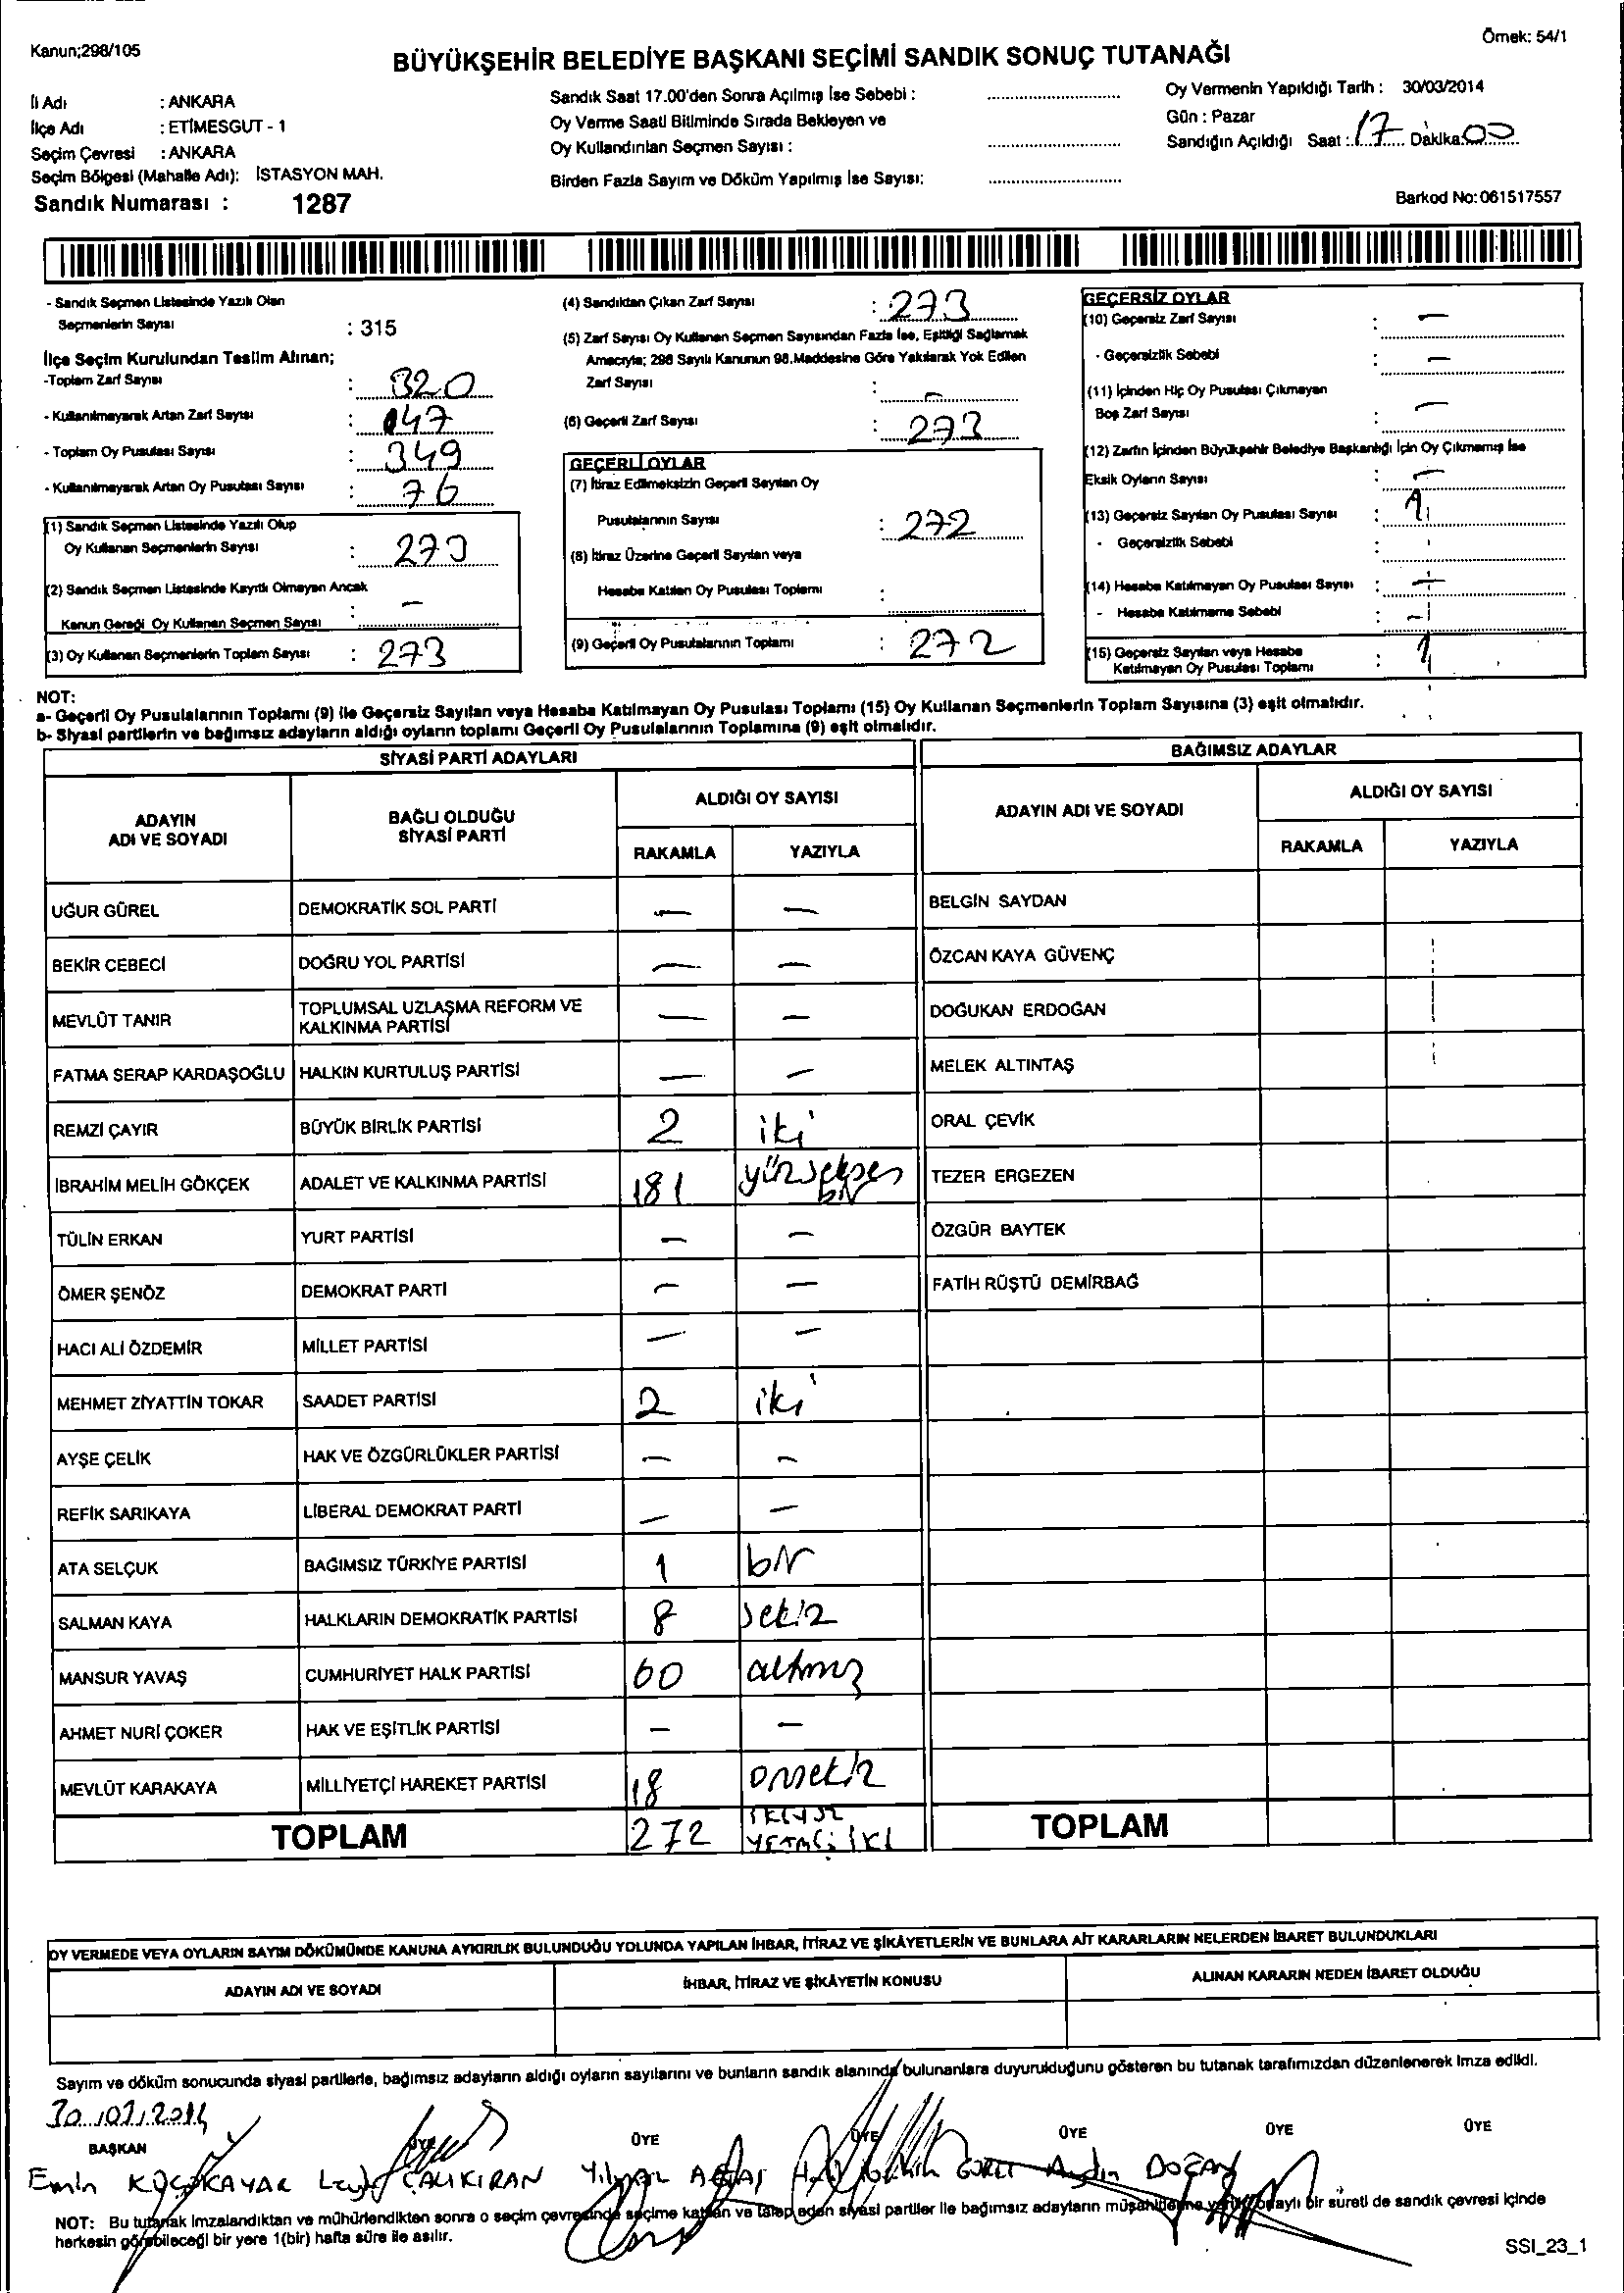 Kanun;298/105
Örnek: 54/1
BÜYÜKŞEHİR BELEDİYE BAŞKANI SEÇİMİ SANDIK SONUÇ TUTANAĞI
İli Adı : ANKARA
İlçe Adı : ETİMESGUT - 1
Seçim Çevresi : ANKARA
Seçim Bölgesi (Mahalle Adı): İSTASYON MAH.
Sandık Numarası : 1287
Sandık Saat 17.00'den Sonra Açılmış İse Sebebi :
Oy Verme Saati Bitiminde Sırada Bekleyen ve
Oy Kullandırılan Seçmen Sayısı :
Birden Fazla Sayım ve Döküm Yapılmış İse Sayısı:
Oy Vermenin Yapıldığı Tarih : 30/03/2014
Gün : Pazar
Sandığın Açıldığı Saat : 17 Dakika 00
Barkod No:061517557
- Sandık Seçmen Listesinde Yazılı Olan
Seçmenlerin Sayısı : 315
İlçe Seçim Kurulundan Teslim Alınan;
-Toplam Zarf Sayısı : 320
- Kullanılmayarak Artan Zarf Sayısı : 047
- Toplam Oy Pusulası Sayısı : 349
- Kullanılmayarak Artan Oy Pusulası Sayısı : 76
(1) Sandık Seçmen Listesinde Yazılı Olup
Oy Kullanan Seçmenlerin Sayısı : 273
(2) Sandık Seçmen Listesinde Kayıtlı Olmayan Ancak
Kanun Gereği Oy Kullanan Seçmen Sayısı : –
(3) Oy Kullanan Seçmenlerin Toplam Sayısı : 273
(4) Sandıktan Çıkan Zarf Sayısı : 273
(5) Zarf Sayısı Oy Kullanan Seçmen Sayısından Fazla İse, Eşitliği Sağlamak
Amacıyla; 298 Sayılı Kanunun 98.Maddesine Göre Yakılarak Yok Edilen
Zarf Sayısı : –
(6) Geçerli Zarf Sayısı : 273
GEÇERLİ OYLAR
(7) İtiraz Edilmeksizin Geçerli Sayılan Oy
Pusulalarının Sayısı : 272
(8) İtiraz Üzerine Geçerli Sayılan veya
Hesaba Katılan Oy Pusulası Toplamı :
(9) Geçerli Oy Pusulalarının Toplamı : 272
GEÇERSİZ OYLAR
(10) Geçersiz Zarf Sayısı : –
- Geçersizlik Sebebi : –
(11) İçinden Hiç Oy Pusulası Çıkmayan
Boş Zarf Sayısı : –
(12) Zarfın İçinden Büyükşehir Belediye Başkanlığı İçin Oy Çıkmamış İse
Eksik Oyların Sayısı : –
(13) Geçersiz Sayılan Oy Pusulası Sayısı : 1
- Geçersizlik Sebebi :
(14) Hesaba Katılmayan Oy Pusulası Sayısı : –
- Hesaba Katılmama Sebebi : –
(15) Geçersiz Sayılan veya Hesaba
Katılmayan Oy Pusulası Toplamı : 1
NOT:
a- Geçerli Oy Pusulalarının Toplamı (9) ile Geçersiz Sayılan veya Hesaba Katılmayan Oy Pusulası Toplamı (15) Oy Kullanan Seçmenlerin Toplam Sayısına (3) eşit olmalıdır.
b- Siyasi partilerin ve bağımsız adayların aldığı oyların toplamı Geçerli Oy Pusulalarının Toplamına (9) eşit olmalıdır.
SİYASİ PARTİ ADAYLARI
ADAYIN ADI VE SOYADI
BAĞLI OLDUĞU SİYASİ PARTİ
ALDIĞI OY SAYISI
RAKAMLA YAZIYLA
UĞUR GÜREL DEMOKRATİK SOL PARTİ – –
BEKİR CEBECİ DOĞRU YOL PARTİSİ – –
MEVLÜT TANIR TOPLUMSAL UZLAŞMA REFORM VE KALKINMA PARTİSİ – –
FATMA SERAP KARDAŞOĞLU HALKIN KURTULUŞ PARTİSİ – –
REMZİ ÇAYIR BÜYÜK BİRLİK PARTİSİ 2 iki
İBRAHİM MELİH GÖKÇEK ADALET VE KALKINMA PARTİSİ 181 yüzseksen bir
TÜLİN ERKAN YURT PARTİSİ – –
ÖMER ŞENÖZ DEMOKRAT PARTİ – –
HACI ALİ ÖZDEMİR MİLLET PARTİSİ – –
MEHMET ZİYATTİN TOKAR SAADET PARTİSİ 2 iki
AYŞE ÇELİK HAK VE ÖZGÜRLÜKLER PARTİSİ – –
REFİK SARIKAYA LİBERAL DEMOKRAT PARTİ – –
ATA SELÇUK BAĞIMSIZ TÜRKİYE PARTİSİ 1 bir
SALMAN KAYA HALKLARIN DEMOKRATİK PARTİSİ 8 sekiz
MANSUR YAVAŞ CUMHURİYET HALK PARTİSİ 60 altmış
AHMET NURİ ÇOKER HAK VE EŞİTLİK PARTİSİ – –
MEVLÜT KARAKAYA MİLLİYETÇİ HAREKET PARTİSİ 18 onsekiz
TOPLAM 272 İKİYÜZ YETMİŞ İKİ
BAĞIMSIZ ADAYLAR
ADAYIN ADI VE SOYADI
ALDIĞI OY SAYISI
RAKAMLA YAZIYLA
BELGİN SAYDAN
ÖZCAN KAYA GÜVENÇ
DOĞUKAN ERDOĞAN
MELEK ALTINTAŞ
ORAL ÇEVİK
TEZER ERGEZEN
ÖZGÜR BAYTEK
FATİH RÜŞTÜ DEMİRBAĞ
TOPLAM
OY VERMEDE VEYA OYLARIN SAYIM DÖKÜMÜNDE KANUNA AYKIRILIK BULUNDUĞU YOLUNDA YAPILAN İHBAR, İTİRAZ VE ŞİKÂYETLERİN VE BUNLARA AİT KARARLARIN NELERDEN İBARET BULUNDUKLARI
ADAYIN ADI VE SOYADI
İHBAR, İTİRAZ VE ŞİKÂYETİN KONUSU
ALINAN KARARIN NEDEN İBARET OLDUĞU
Sayım ve döküm sonucunda siyasi partilerle, bağımsız adayların aldığı oyların sayılarını ve bunların sandık alanında bulunanlara duyurulduğunu gösteren bu tutanak tarafımızdan düzenlenerek imza edildi.
30/03/2014
BAŞKAN ÜYE ÜYE ÜYE ÜYE ÜYE ÜYE
Emin KÜÇÜKAYAR ÇALIKIRAN Aydın DOĞAN
NOT: Bu tutanak imzalandıktan ve mühürlendikten sonra o seçim çevresinde seçime katılan ve talep eden siyasi partiler ile bağımsız adayların müşahitlerine verilir, onaylı bir sureti de sandık çevresi içinde
herkesin görebileceği bir yere 1(bir) hafta süre ile asılır.
SSI_23_1